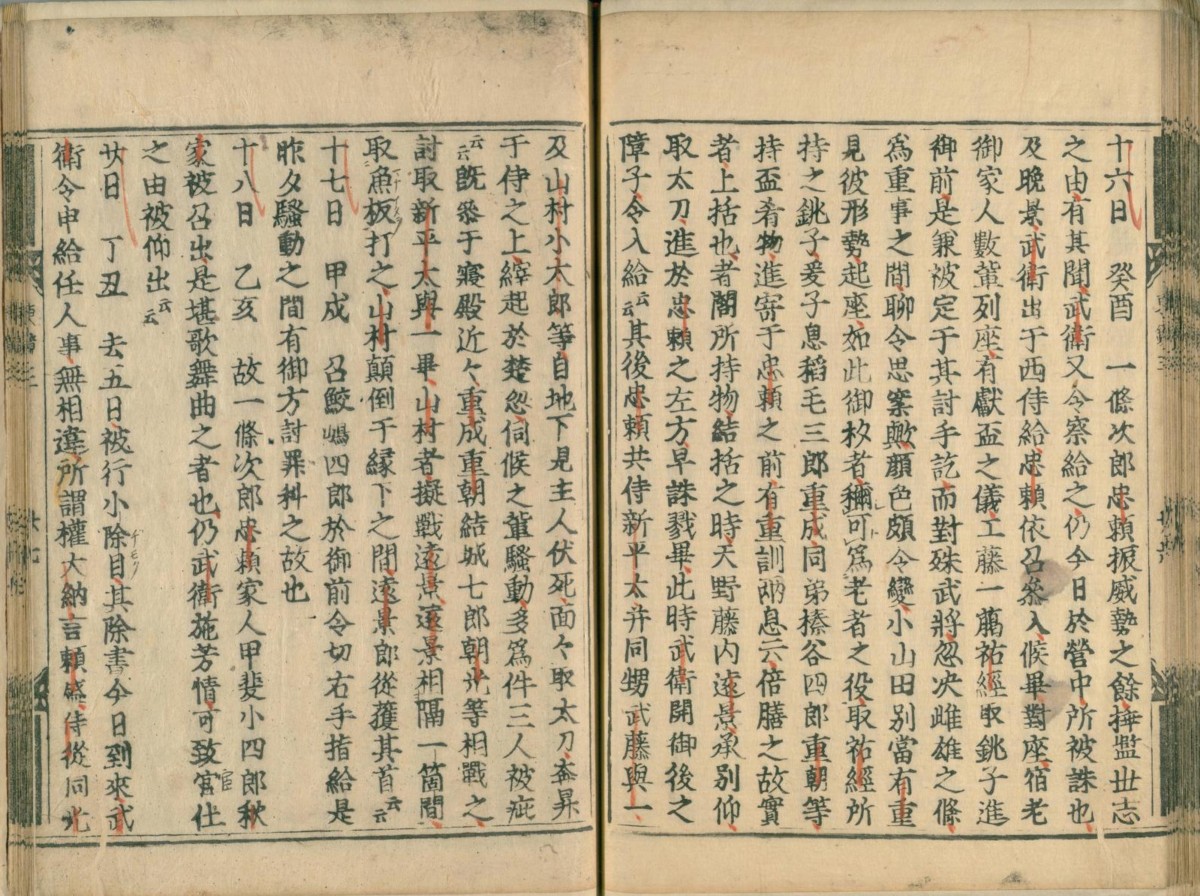 十六日　癸酉　一條次郎忠頼振威勢之餘挿濫世志
之由有其聞武衛又令察給之仍今日於營中所被誅也
及晩景武衛出于西侍給忠頼依召參入候畢對座宿老
御家人數輩列座有獻盃之儀工藤一﨟祐經取銚子進
御前是兼被定于其討手訖而對殊武將忽决雌雄之條
爲重事之間聊令思案歟顔色頗令變小山田別當有重
見彼形勢起座如此御杦者稱可爲老者之役取祐經所
持之銚子爰子息稻毛三郎重成同弟榛谷四郎重朝等
持盃肴物進寄于忠頼之前有重訓兩息云倍膳之故實
者上括也者閣所持物結括之時天野藤内遠景承別仰
取太刀進於忠頼之左方早誅戮畢此時武衛開御後之
障子令入給云云其後忠頼共侍新平太并同甥武藤與一
及山村小太郎等自地下見主人伏死面々取太刀奔昇
于侍之上縡起於楚忽伺候之輩騒動多爲件三人被疵
云云既參于寢殿近々重成重朝結城七郎朝光等相戰之
討取新平太與一畢山村者擬戰遠景遠景相隔一箇間
取魚板打之山村顛倒于縁下之間遠景郎從獲其首云云
十七日　甲戌　召鮫嶋四郎於御前令切右手指給是
昨夕騒動之間有御方討罪科之故也
十八日　乙亥　故一條次郎忠頼家人甲斐小四郎秋
家被召出是堪歌舞曲之者也仍武衛施芳情可致官仕
之由被仰出云云
廿日　丁丑　去五日被行小除目其除書今日到來武
衛令申給任人事無相違所謂權大納言頼盛侍從同光